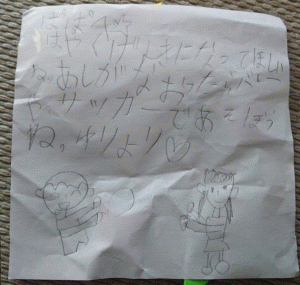 ぱぱへ
はやくげんきになってほしい
な。あしがなおったらバレー
やサッカーであそぼう
ね。ゆりより♡